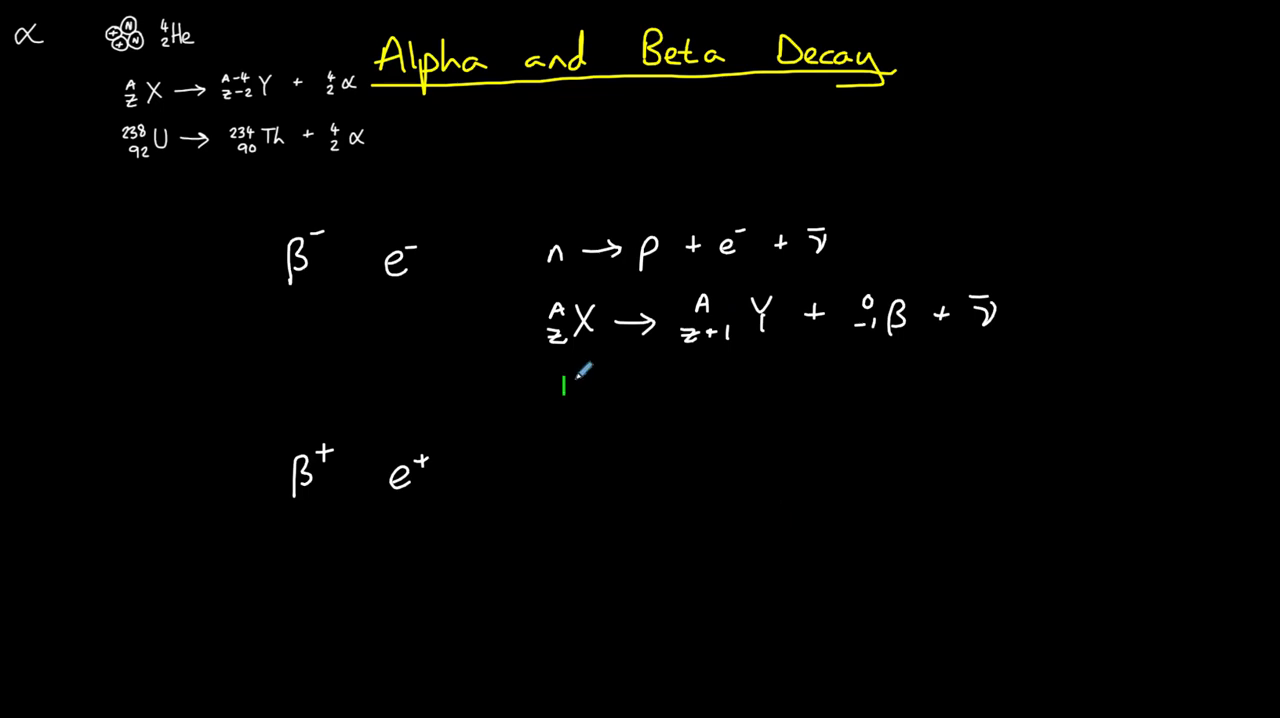 Alpha and Beta Decay
α ⁴₂He
ᴬ_Z X → ᴬ⁻⁴_Z₋₂ Y + ⁴₂α
²³⁸₉₂U → ²³⁴₉₀Th + ⁴₂α
β⁻ e⁻ n → p + e⁻ + ν̄
ᴬ_Z X → ᴬ_Z₊₁ Y + ⁰₋₁β + ν̄
1
β⁺ e⁺